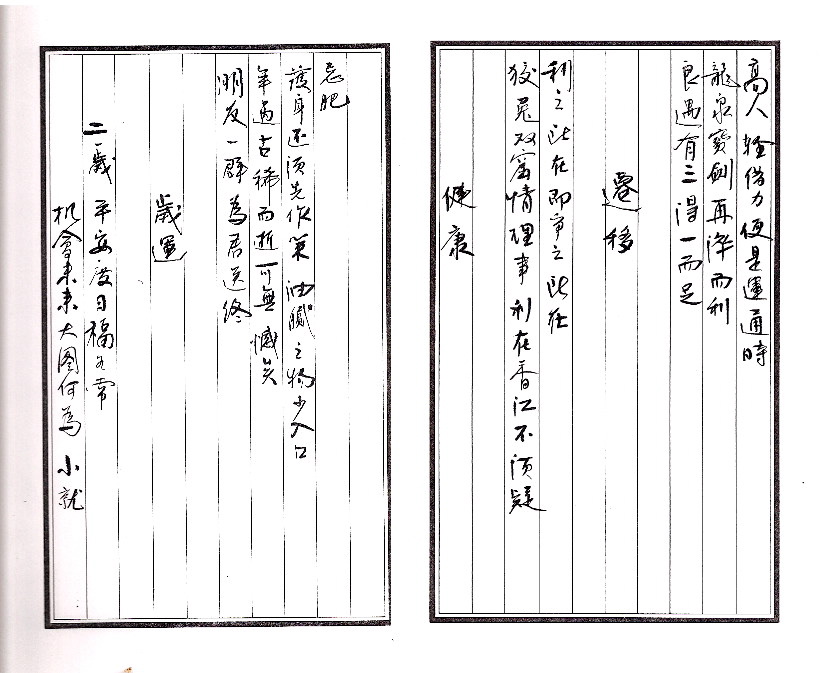 高人輕借力便是運通時
龍泉寶劍再淬而利
良遇有三得一而足
遷移
利之所在即爭之所在
狡兎双窟情理事 利在香江不須疑
健康
忌肥
護身还須先作策 油膩之物少入口
年過古稀而逝 可無憾矣
朋友一群為君送終
歲運
二一歲 平安度日福不常
机會未来大圖何為 小就